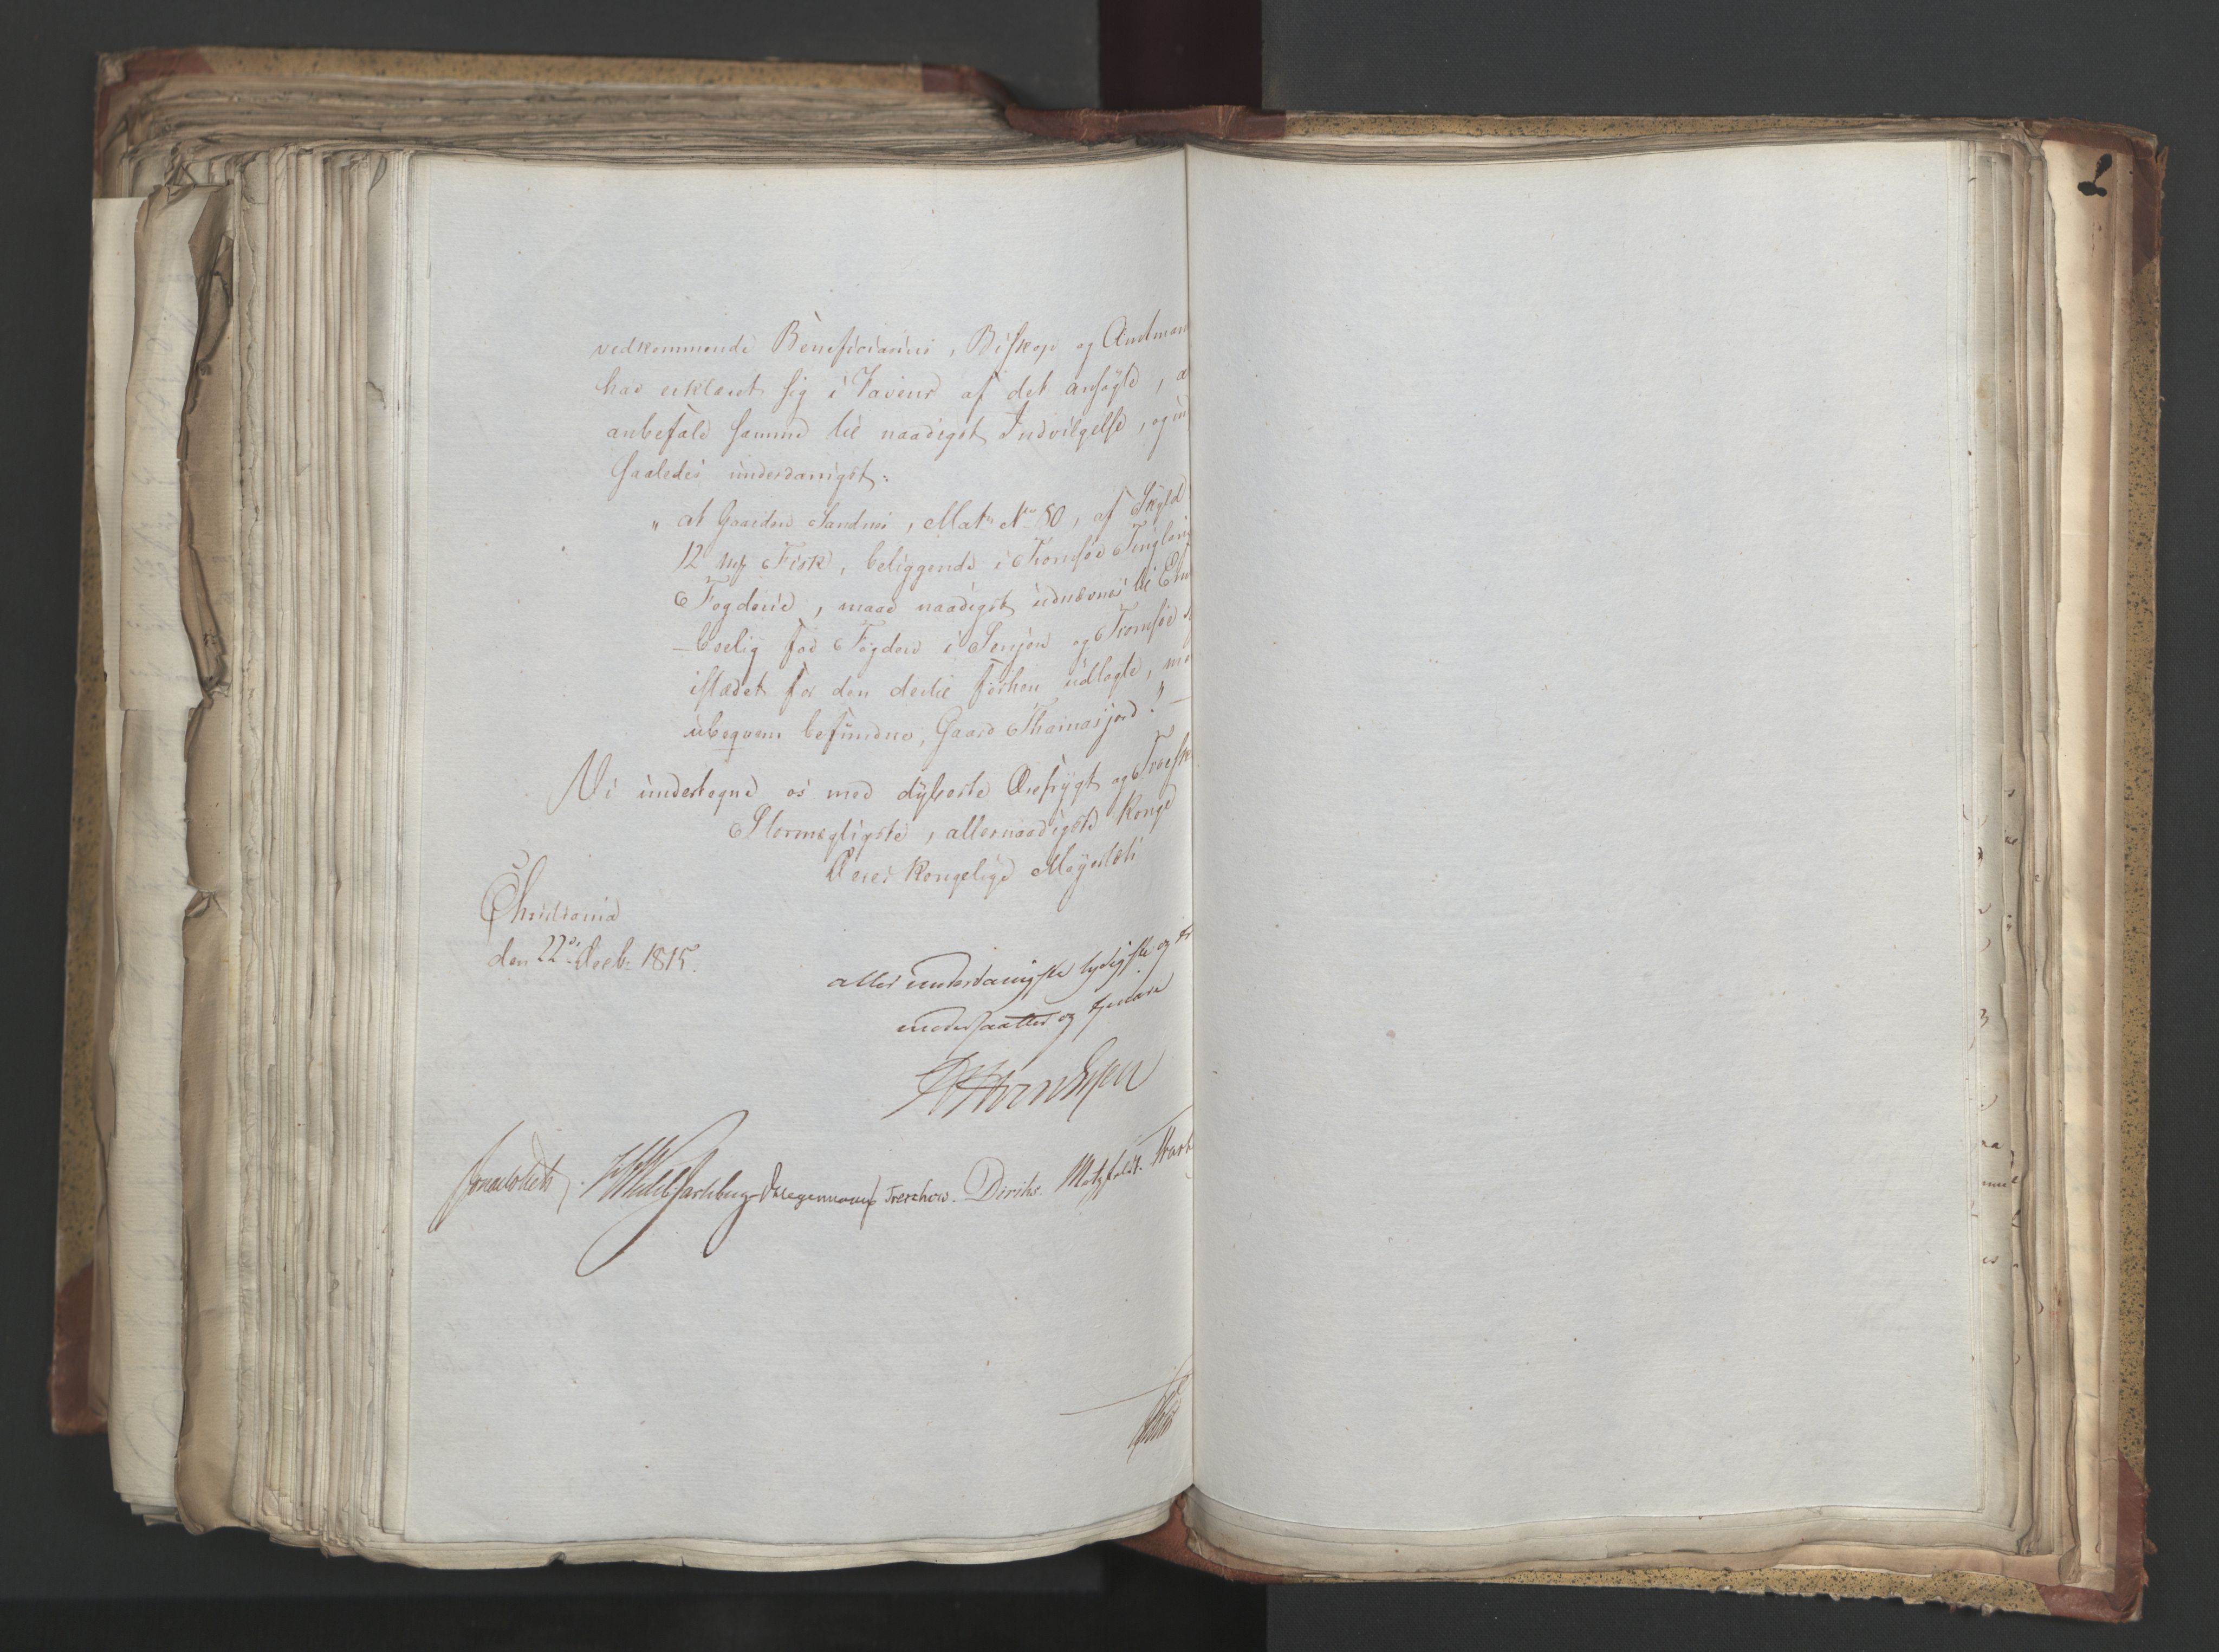 vedkommende Beneficiarius, Biskop og Amtman
har erklæret sig i Faveur af det ansøgte, a
anbefale samme til naadigst Indvilgelse, og in
saaledes underdanigst:
„ at Gaarden Sandnes, Mat: No 80, af Skyld
12 Fisk, beliggende i Tromsøe Tinglaug
Fogderie, maae naadigst udnævnes til Em
-boelig for Fogden i Senjen og Tromsøe
istædet for den dertil forhen udlagte, me
ubeqvem befundne, Gaard Thomasjord." —
Vi undertegne os med dybeste Ærefrygt og Troesk
Stormægtigste, allernaadigste Konge
Deres Kongelige Majestæts
Christiania
den 22de Decb: 1815.
allerunderdanigste lydigste og tr
undersaatter og tjenere
Sommerhielm. HWedel Jarlsberg. Treschow. Diriks. Motzfeldt.